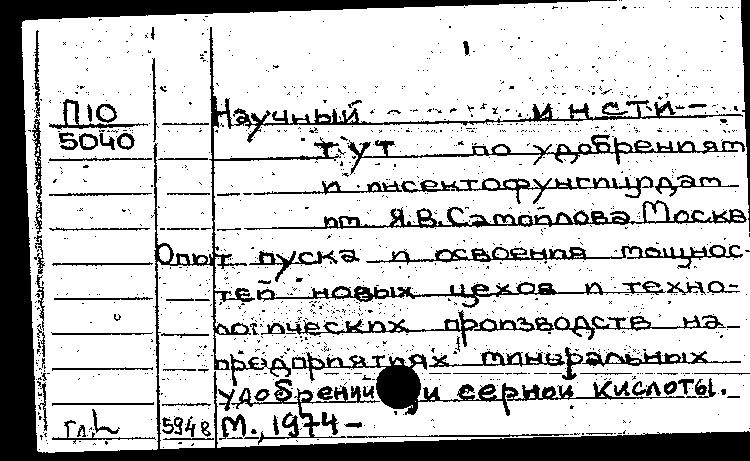 П10
5040
Научный инсти-
тут по удобрениям
и инсектофунгицидам
им. Я.В.Самойлова.Москв
Опыт пуска и освоения мощнос-
тей новых цехов и техно-
логических производств на
предприятиях минеральных
удобрений и серной кислоты.
5948 М., 1974-